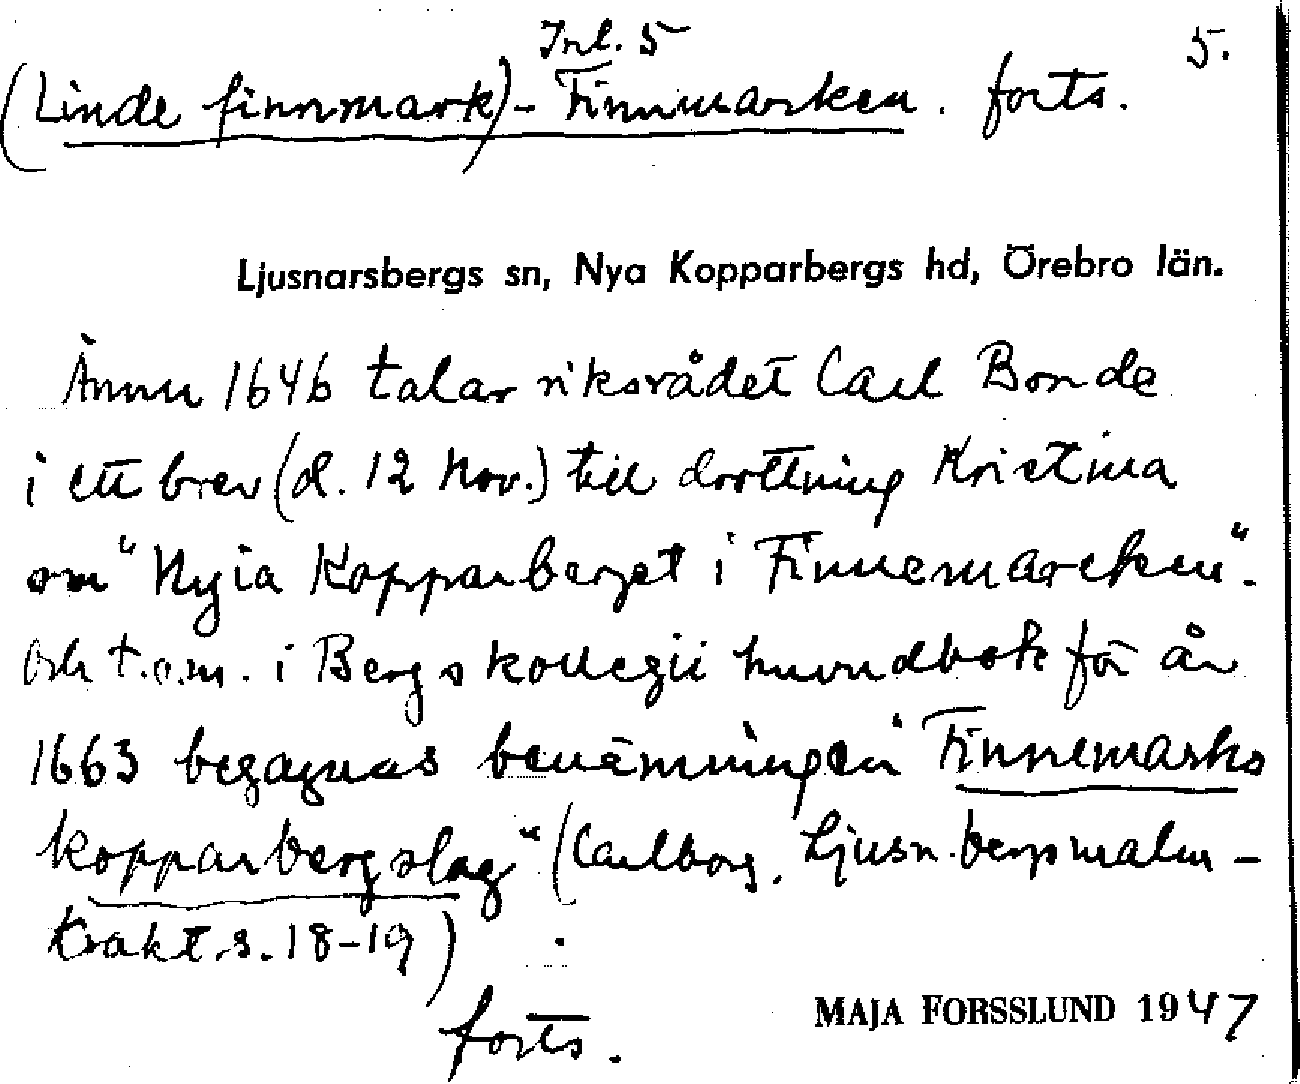 Inl. 5
5.
(Linde finnmark) - Finnmarken. forts.
Ljusnarsbergs sn, Nya Kopparbergs hd, Örebro län.
Ännu 1646 talar riksrådet Carl Bonde
i ett brev (d. 12 Nov.) till drottning Kristina
om "Nyia Kopparberget i Finnemarcken".
Och t.o.m. i Bergskollegii huvudbok för år
1663 begagnas benämningen "Finnemarks
kopparbergslag" (Carlborg, Ljusn.bergs malm-
trakt. s. 18-19)
forts.
MAJA FORSSLUND 1947